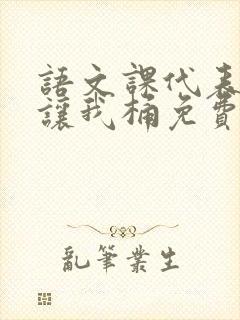 語文課代表
讓我桶免費
亂筆業生